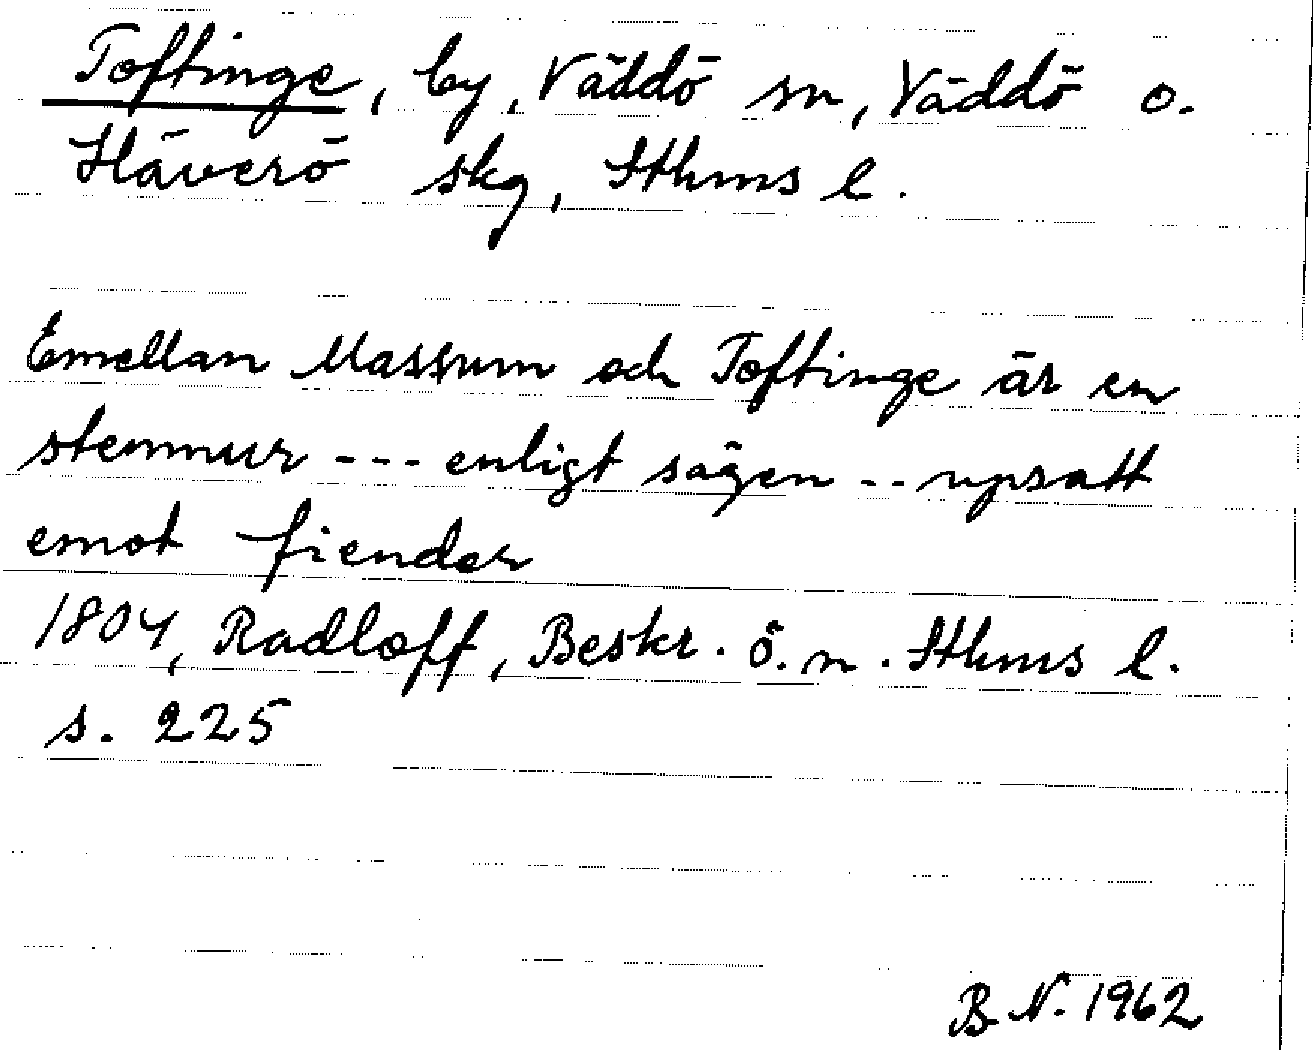 Toftinge, by, Väddö sn, Väddö o.
Häverö skg, Sthms l.
Emellan Massum och Toftinge är en
stenmur --- enligt sägen -- upsatt
emot fiender
1804, Radloff, Beskr. ö. n. Sthms l.
s. 225
B. N. 1962